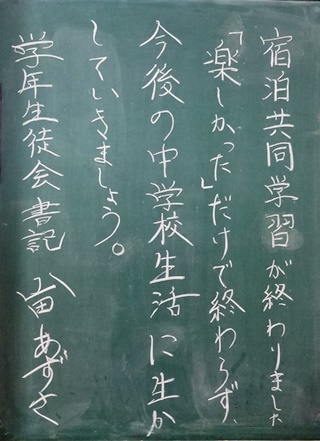 宿泊共同学習が終わりました
「楽しかった」だけで終わらず、
今後の中学校生活に生か
していきましょう。
学年生徒会書記 山田あずさ